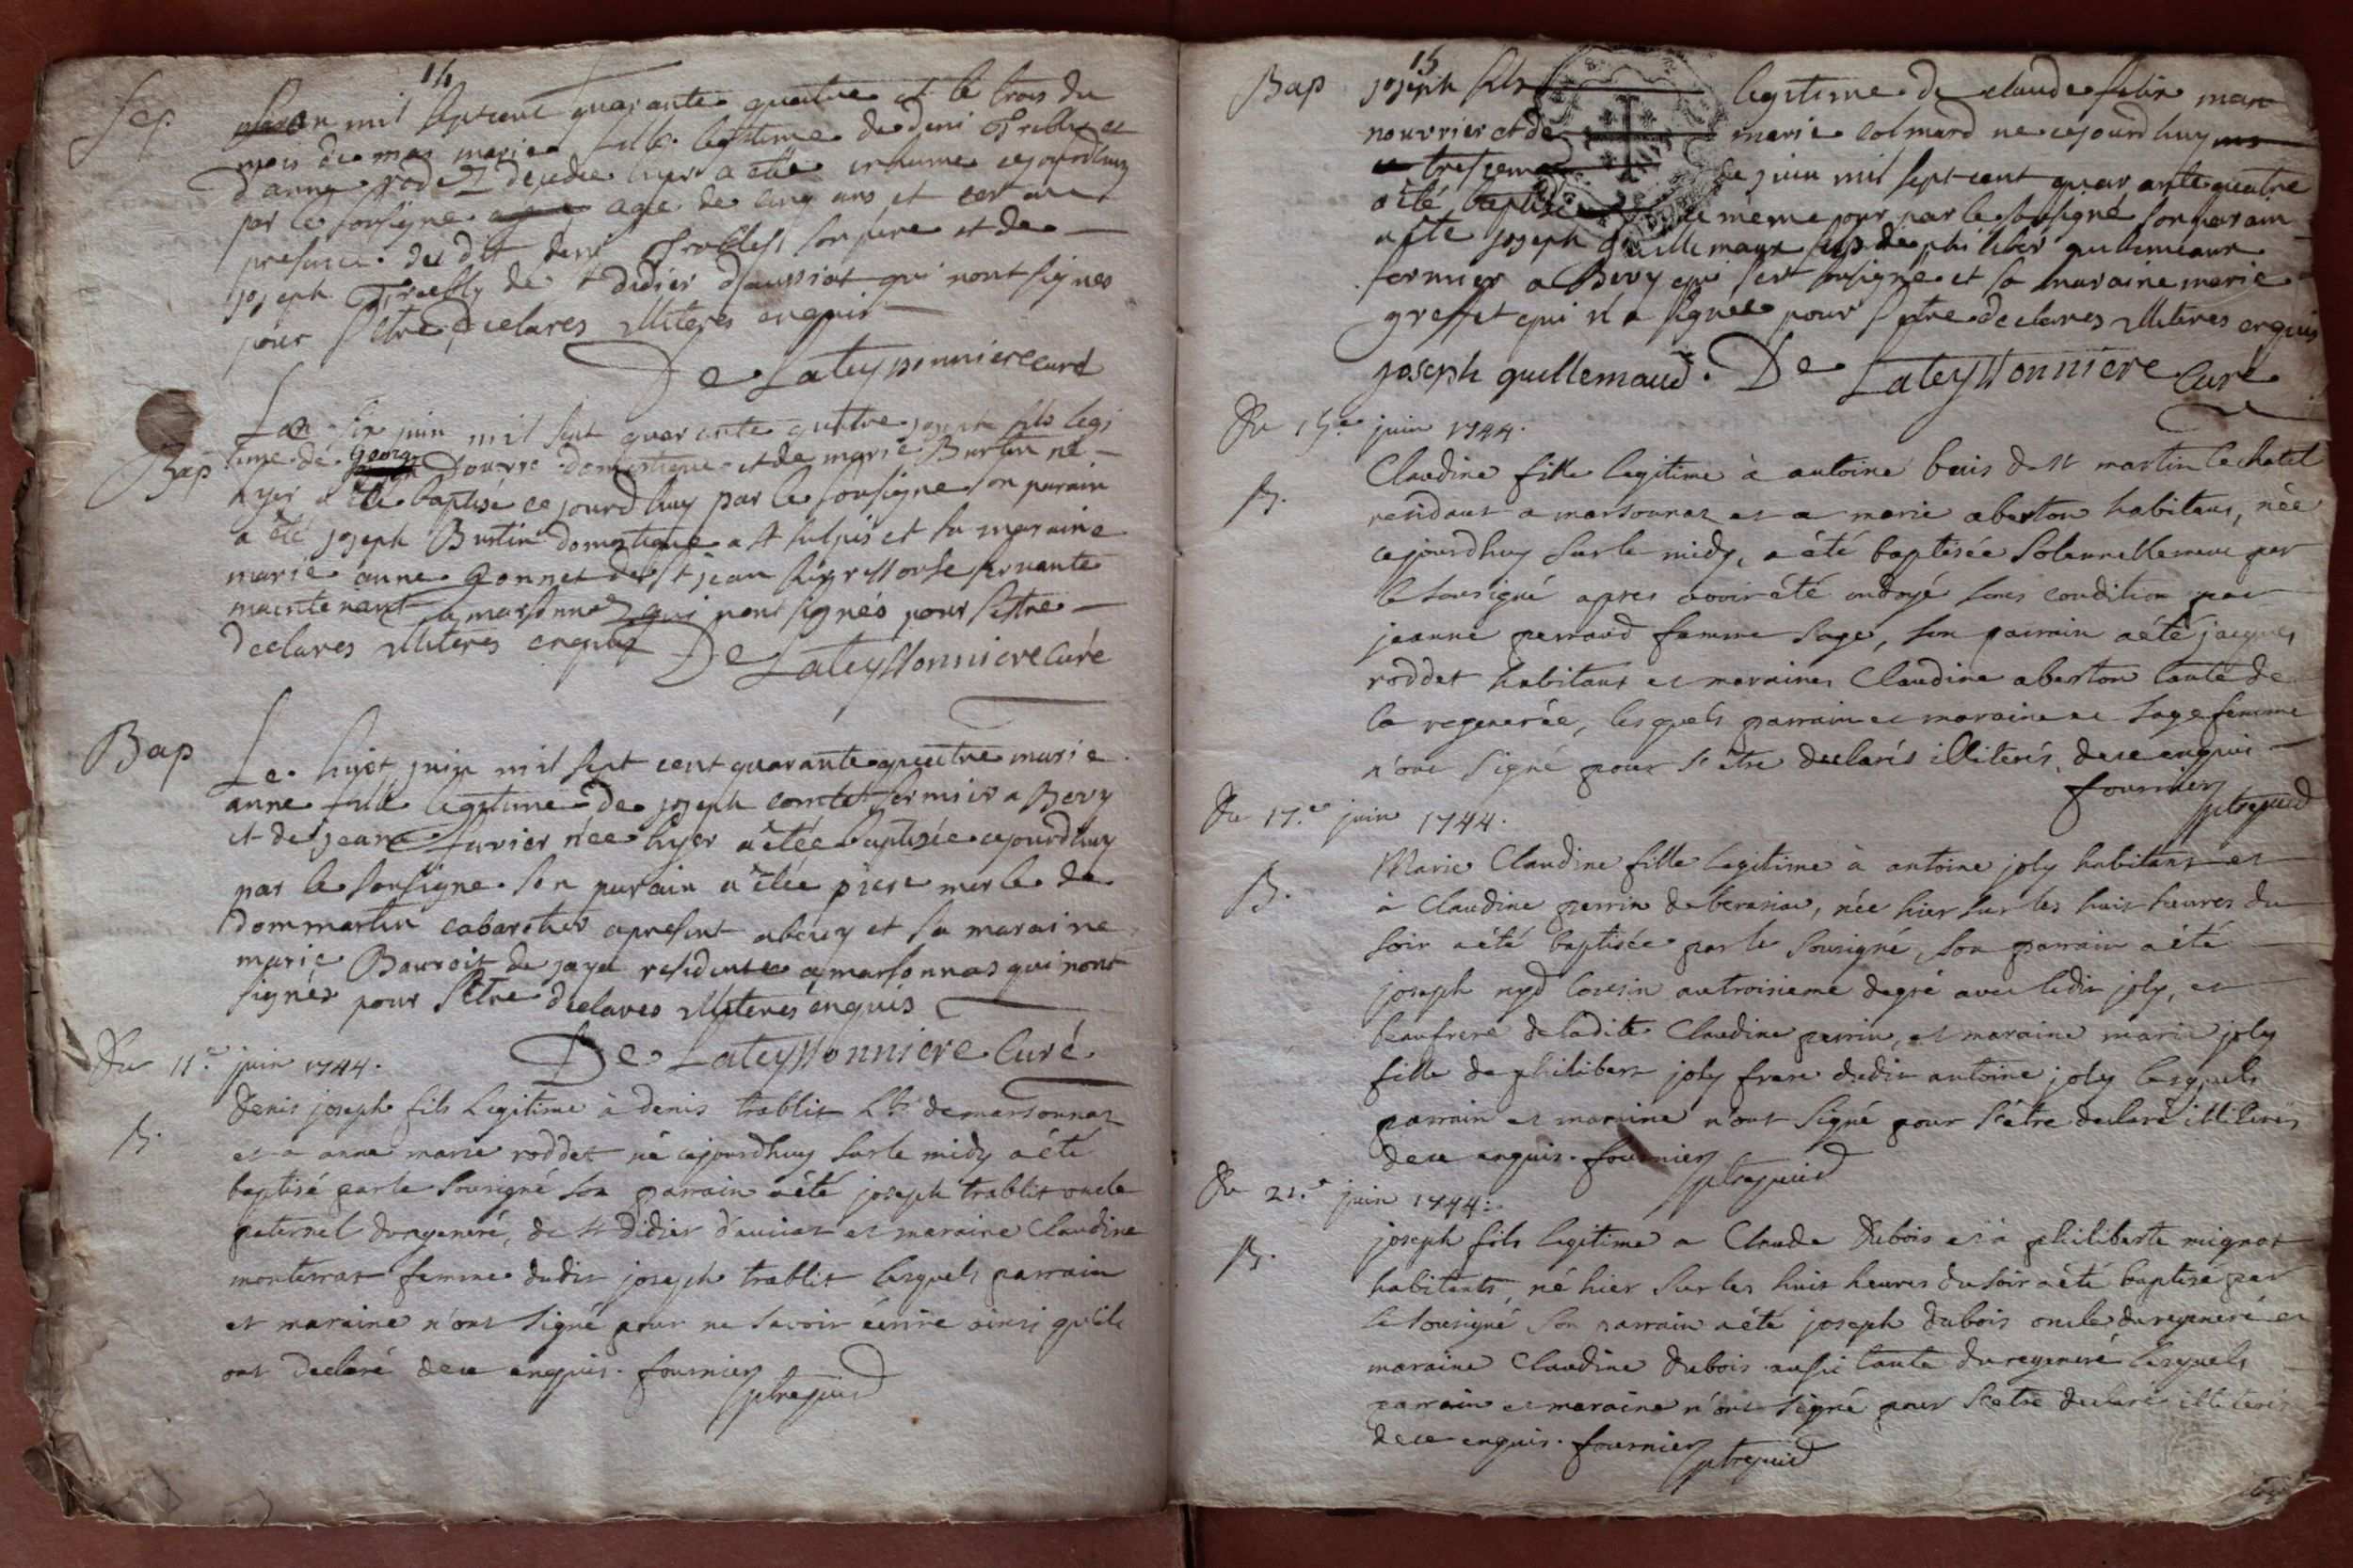 14
Sep
mil sept cent quarante quatre et le trois du
mois de may marie fille legitime de deni Trablit et
d'anne rodet decedee hier a este inhumé cejourdhuy
par le sousigne age de cinq ans et cest au
presence du dit deni son pere et de
joseph de st didier d'aussiat qui nont signes
pour setre declares illiteres enquis
De Lateyssonniere curé
Bap
six juin mil sept quarante quattre joseph fils legi
time de George domestique et de marie Burtin né
hyer a été baptisé cejourdhuy par le sousigne son parain
a été joseph Burtin domestique a st sulpis et sa maraine
marie anne Gonnet de st jean servante
maintenant a marsonnaz qui nont signés pour settre
declares illiteres enquis De Lateyssonniere Curé
Bap
Le hujot juin mil sept cent quarante quattre marie
anne fille legitime de joseph comtet fermier a Bevy
et de jeane favier née hyer a étée baptisée cejourdhuy
par le sousigne son parain a étée piere merle de
dommartin cabaretier apresent et sa maraine
marie de jaya residente a marsonnas qui nont
signés pour setre declares illiteres enquis
De Lateyssonniere Curé
Du 11.e juin 1744.
B.
Denis joseph fils legitime à denis trablit de marsonnaz
et a anne marie roddet né cejourdhuy sur le midy a été
baptisé par le sousigné son parrain a été joseph trablit oncle
paternel du regeneré, de st didier d'auciat et maraine Claudine
monterrat femme dudit joseph trablit lesquels parrain
et maraine n'ont signé pour ne savoir écrire ainsi qu'ils
ont declaré de ce enquis. fournier
15
Bap
joseph fils legitime de claude felix man
nouvrier et de marie colmard ne cejourdhuy
de juin mil sept cent quarante quatre
a été baptisé le même jour par le sousigné son parain
a été joseph Guillemaux fils de philiber guillemeaux
fermier a Bevy qui sest sousigne et sa maraine marie
greffet qui n'a signée pour setre declares illiteres enquis
joseph guillemaud. De Lateyssonniere Curé
Du 15.e juin 1744.
B.
Claudine fille legitime à antoine buis de st martin le chatel
residant a marsonnaz et a marie aberton habitans, née
cejourdhuy sur le midy, a été baptisée solennellement par
le sousigné apres avoir été ondoyé sous condition par
jeanne perraud famme sage, son parrain a été jacques
roddet habitant et maraine Claudine aberton tante de
la regenerée, lesquels parrain et maraine et sage femme
n'ont signé pour s'etre declarés illiterés de ce enquis
fournier
Du 17.e juin 1744.
B.
Marie Claudine fille legitime à antoine joly habitant et
à Claudine perrin de beresiat, née hier sur les huit heures du
soir a été baptisée par le sousigné, son parrain a été
joseph nyd cousin au troisieme degré avec ledit joly, et
beaufrere de ladite Claudine perrin, et maraine marie joly
fille de philibert joly frere dudit antoine joly lesquels
parrain et maraine n'ont signé pour s'etre declaré illiterés
de ce enquis. fournier
Du 21.e juin 1744.
B.
joseph fils legitime a Claude Dubois et à philiberte mignot
habitants, né hier sur les huit heures du soir a été baptisé par
le sousigné son parrain a été joseph dubois oncle du regeneré et
maraine Claudine Dubois aussi tante du regeneré lesquels
parrain et maraine n'ont signé pour s'etre declaré illiterés
de ce enquis. fournier